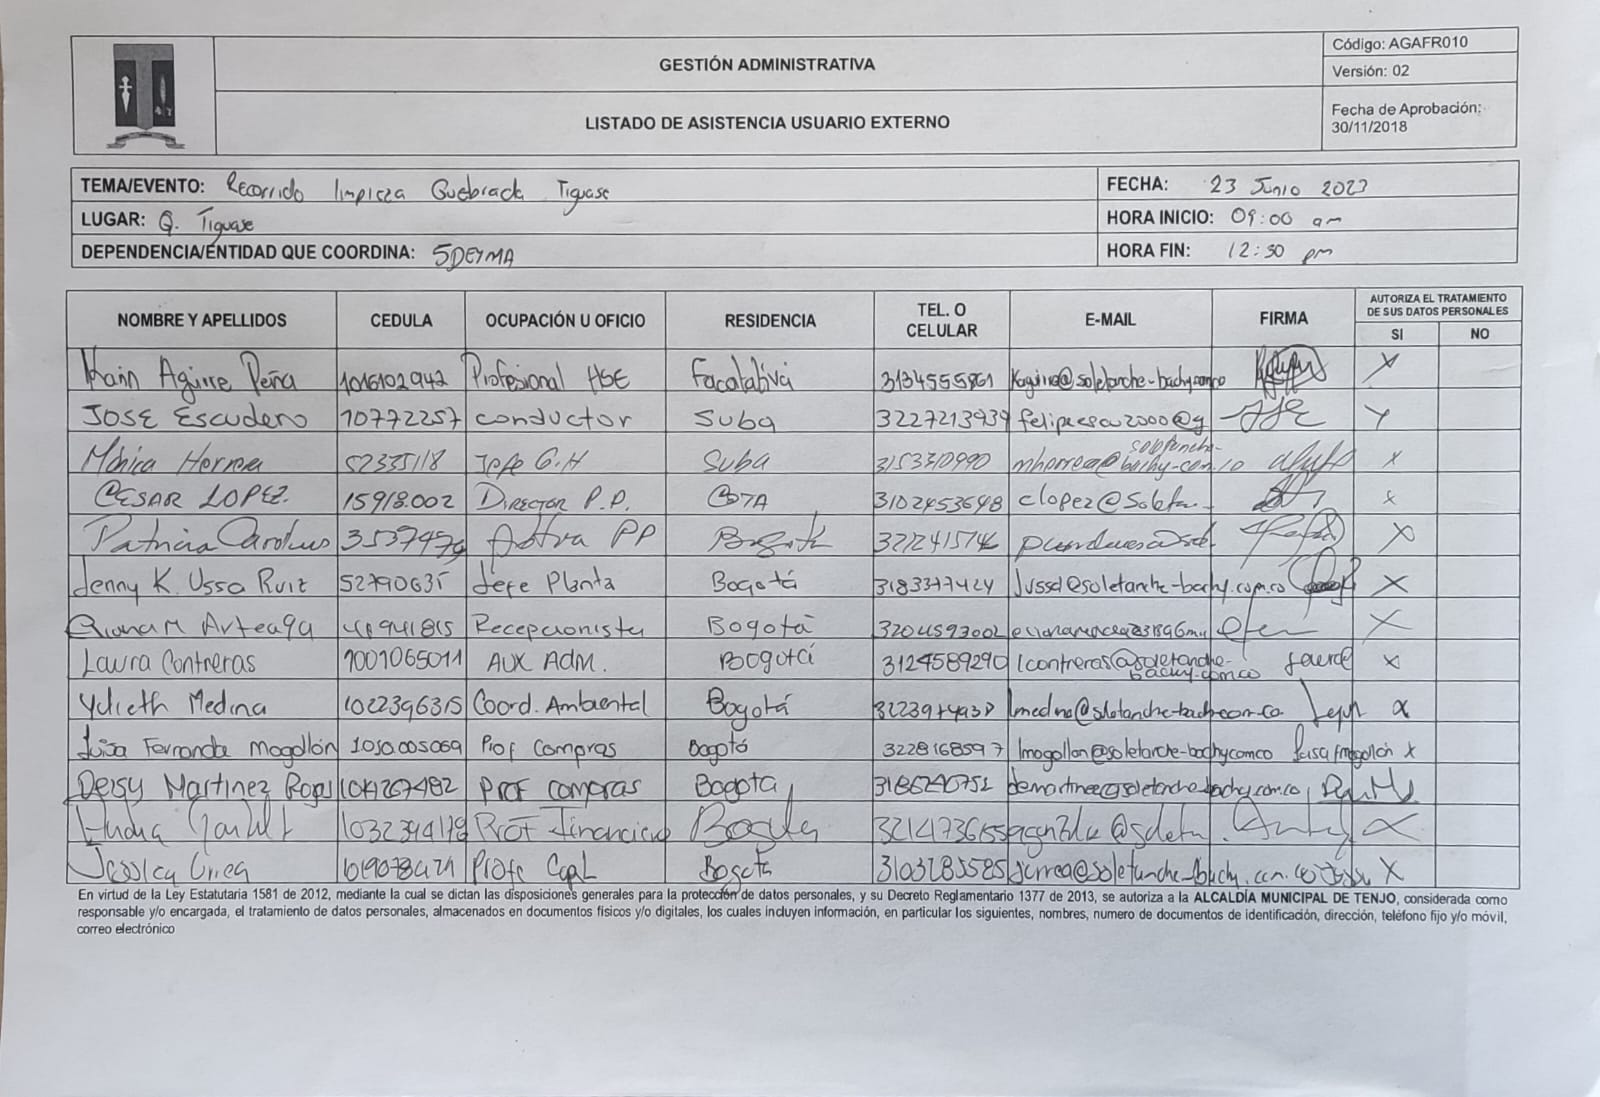 GESTIÓN ADMINISTRATIVA
LISTADO DE ASISTENCIA USUARIO EXTERNO
Código: AGAFR010
Versión: 02
Fecha de Aprobación:
30/11/2018
TEMA/EVENTO: Recorrido limpieza Quebrada Tiguase
FECHA: 23 Junio 2023
LUGAR: Q. Tiguase
HORA INICIO: 09:00 am
DEPENDENCIA/ENTIDAD QUE COORDINA: SDEYMA
HORA FIN: 12:30 pm
NOMBRE Y APELLIDOS CEDULA OCUPACIÓN U OFICIO RESIDENCIA TEL. O CELULAR E-MAIL FIRMA AUTORIZA EL TRATAMIENTO DE SUS DATOS PERSONALES SI NO
Karin Aguirre Peña 1016102942 Profesional HSE Facatativá X
JOSE Escudero 10772257 conductor Suba 3227213939 X
Mónica Herrera 52335118 Jefe G.H Suba 3153310990 X
CESAR LOPEZ. 15918.002 DIRECTOR P.P. COTA 3102453648 clopez@Soleta X
Patricia PP Bogotá X
Jenny K. Ussa Ruiz 52790635 Jefe Planta Bogotá 3183377424 Jussa@soletanche-bachy.com.co X
Arteaga Recepcionista Bogotá 3204593002 X
Laura Contreras 1001065011 AUX ADM. Bogotá 3124589290 lcontreras@soletanche-bachy.com.co X
Yulieth Medina 1022396315 Coord. Ambiental Bogotá X
Luisa Fernanda Mogollón 1030.005069 Prof Compras Bogotá 3228168597 lmogollon@soletanche-bachy.com.co Luisa fmogollón X
Deisy Martinez Prof compras Bogota 3186240752 demartinez@soletanche-bachy.com.co
Prof Financiero Bogota X
Jessica Urrea Bogotá 3103285585 jurrea@soletanche-bachy.com.co X
En virtud de la Ley Estatutaria 1581 de 2012, mediante la cual se dictan las disposiciones generales para la protección de datos personales, y su Decreto Reglamentario 1377 de 2013, se autoriza a la ALCALDÍA MUNICIPAL DE TENJO, considerada como
responsable y/o encargada, el tratamiento de datos personales, almacenados en documentos físicos y/o digitales, los cuales incluyen información, en particular los siguientes, nombres, numero de documentos de identificación, dirección, teléfono fijo y/o móvil,
correo electrónico